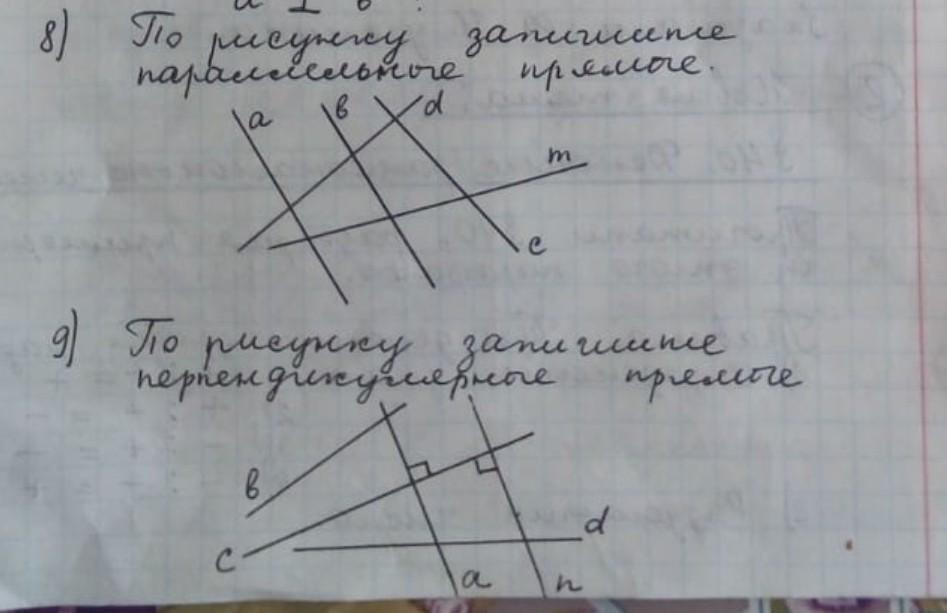 a ⊥ в ?
8) По рисунку запишите
параллельные прямые.
a в d
m
c
9) По рисунку запишите
перпендикулярные прямые
в
d
c
a n